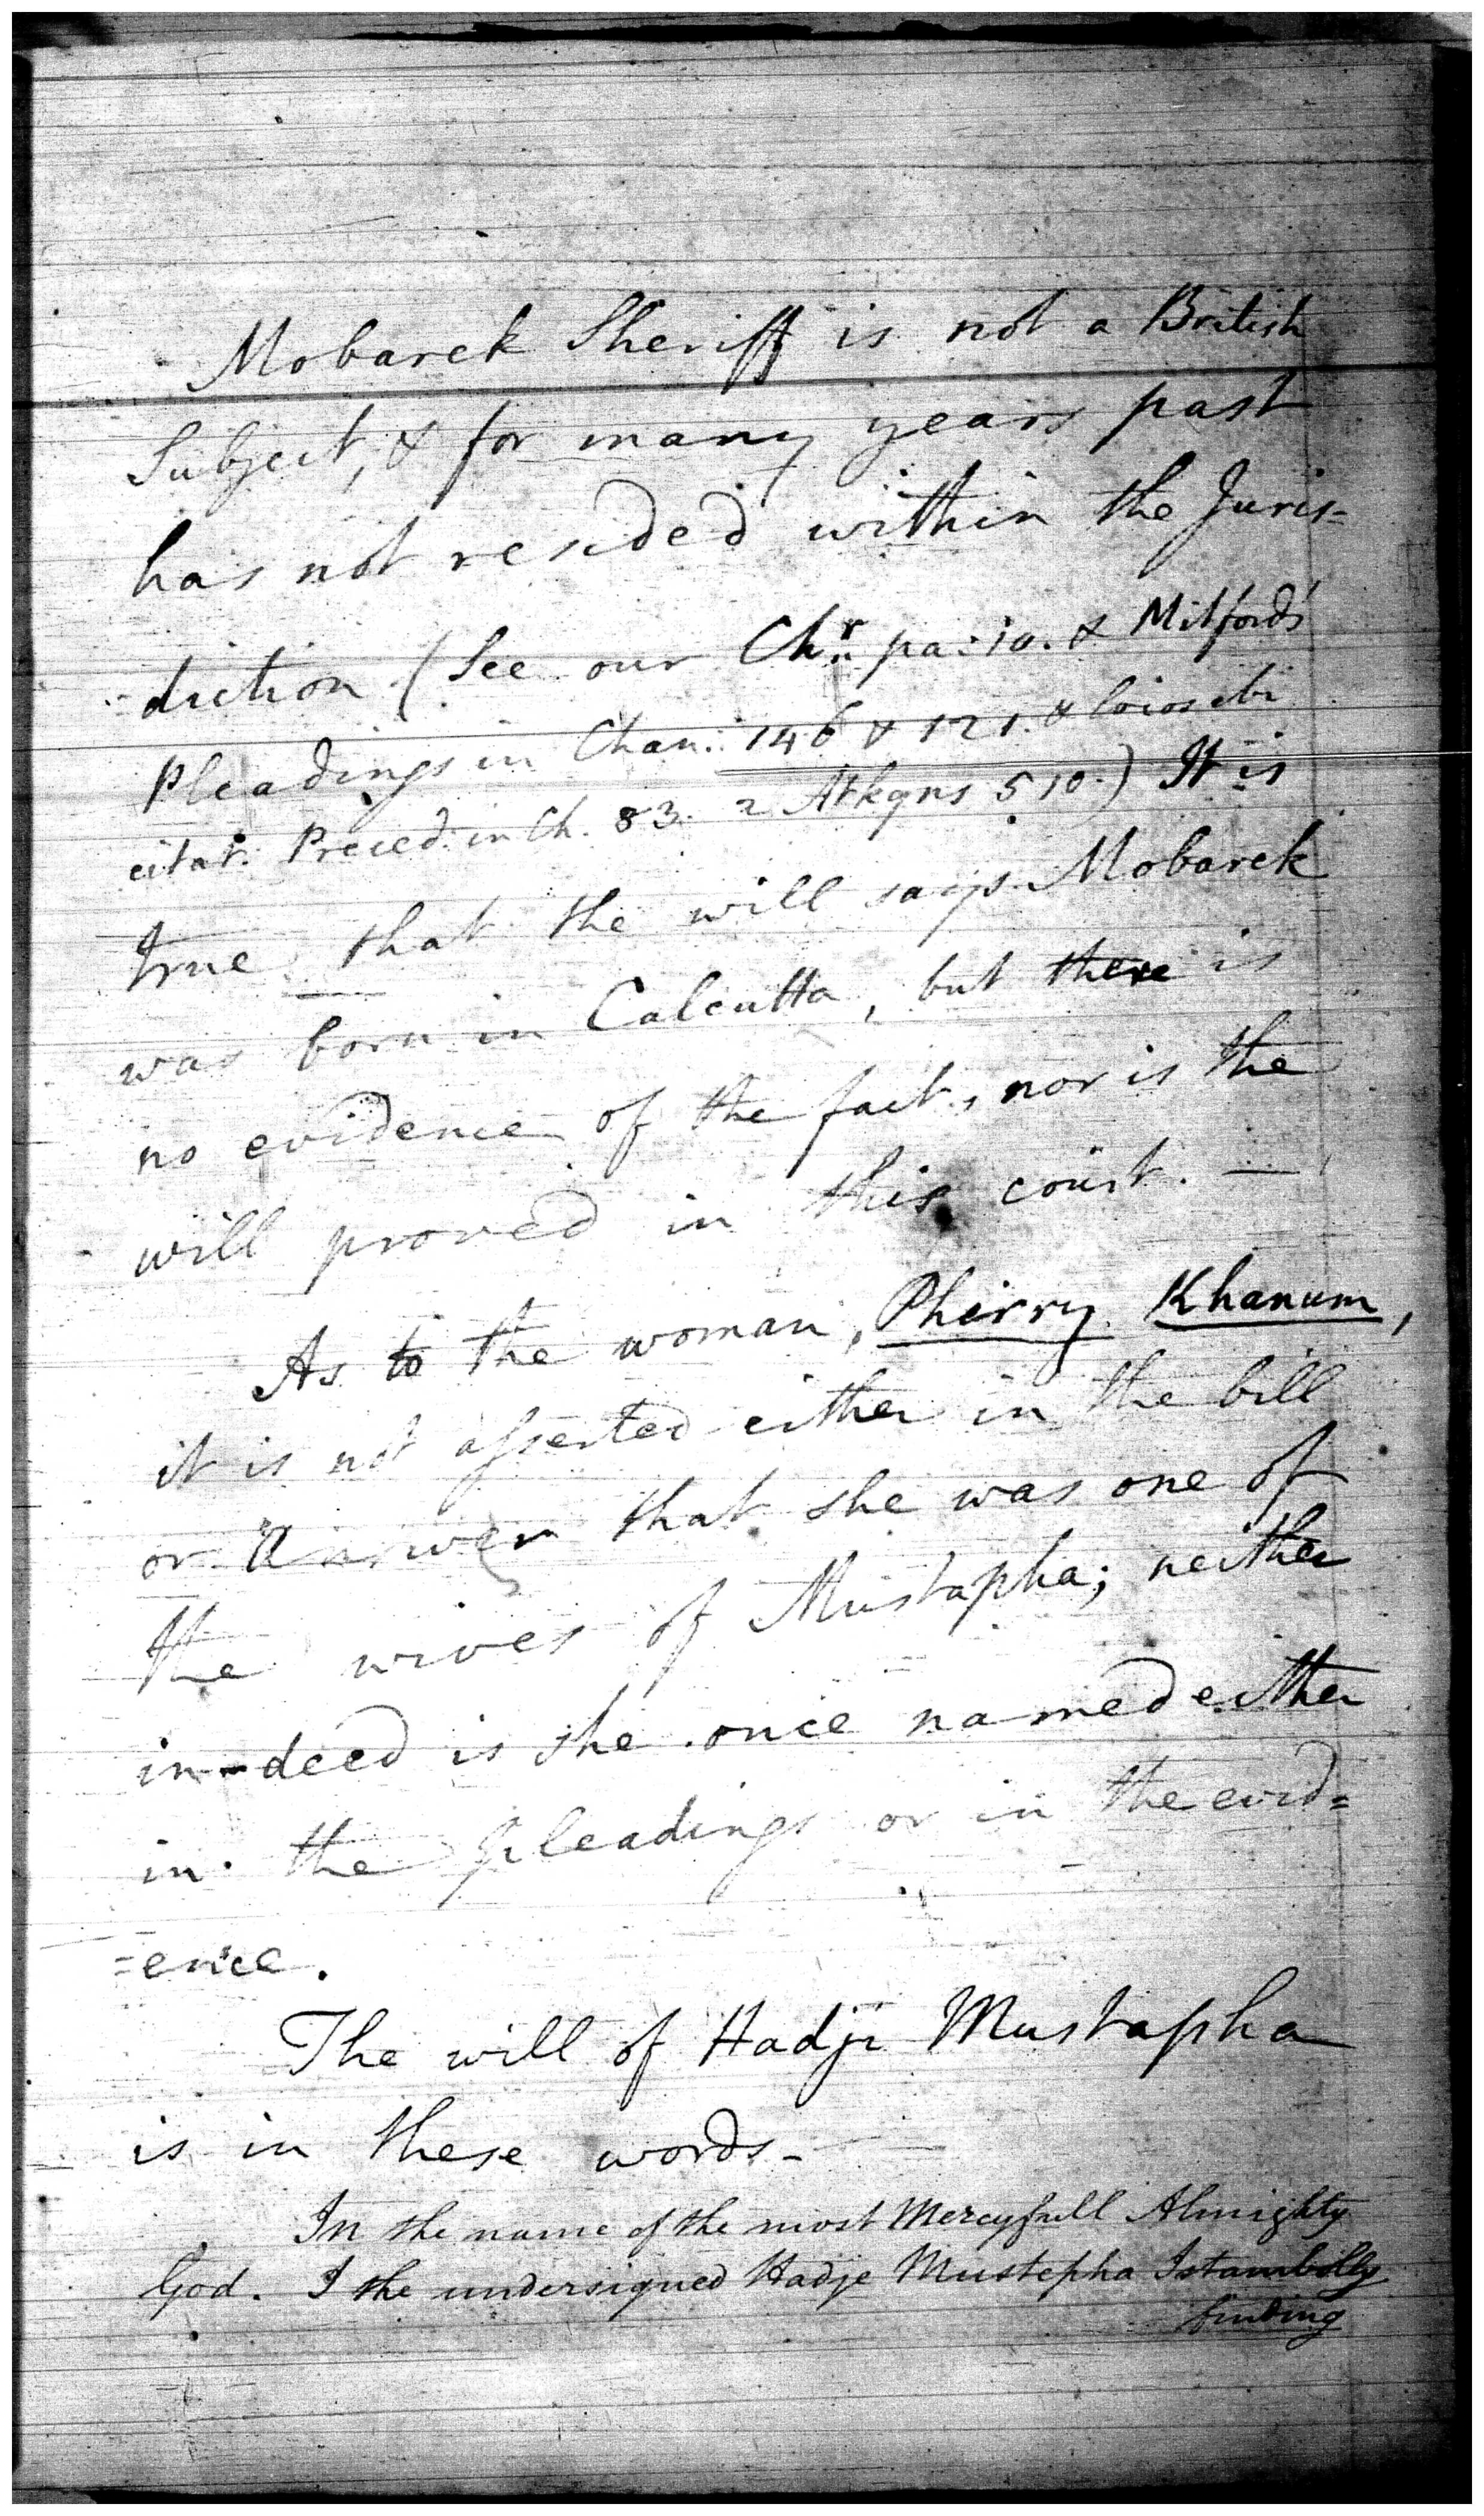 Mobarek Sheriff is not a British
Subject, & for many years past
has not resided within the Juris=
diction (See our Chr. pa: 10. & Mitford's
Pleadings in Chan: 146 & 121. &
citat. Preced: in Ch. 83. 2 Atkyns 510.) It is
true that the will says Mobarek
was born in Calcutta, but there is
no evidence of the fact, nor is the
will proved in this court. —
As to the woman, Phirry Khanum,
it is not asserted either in the bill
or Answer that she was one of
the wives of Mustapha; neither
in-deed is she once named either
in the pleadings or in the evid=
=ence.
The will of Hadji Mustapha
is in these words-
In the name of the most Mercyfull Almighty
God. I the undersigned Hadje Mustepha Istambolly
finding